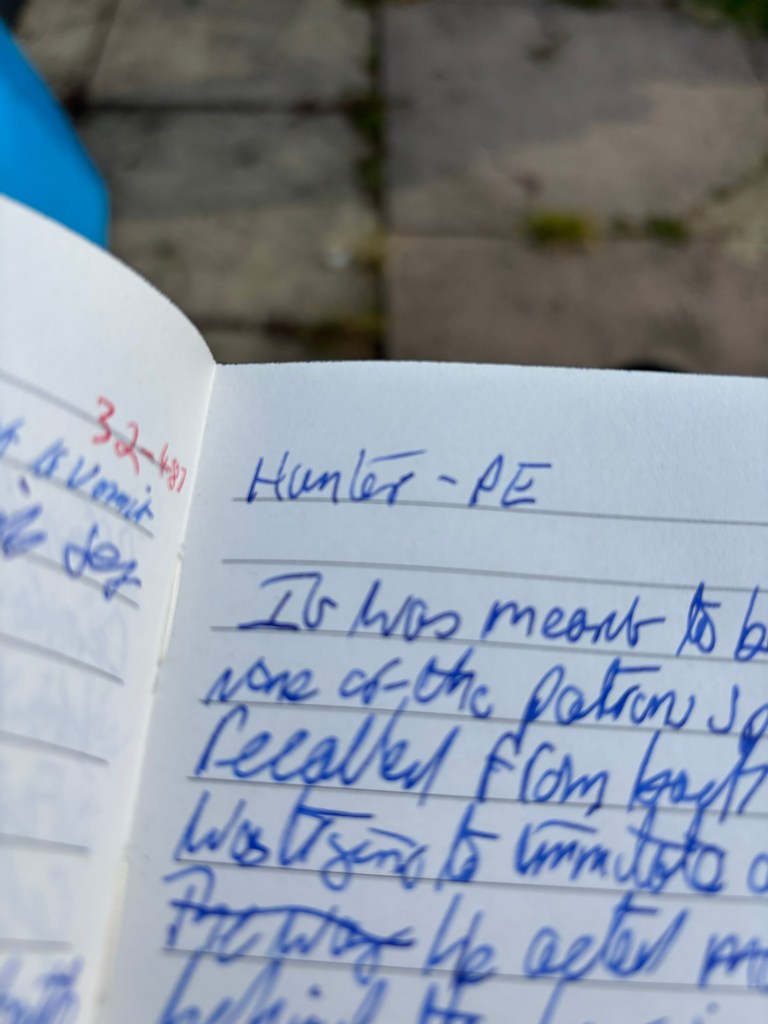 32-487
to vomit
joy
Hunter - PE
It was meant to b
none of the patrons
recalled from
was trying to immitate a
The way He acted m
behind the